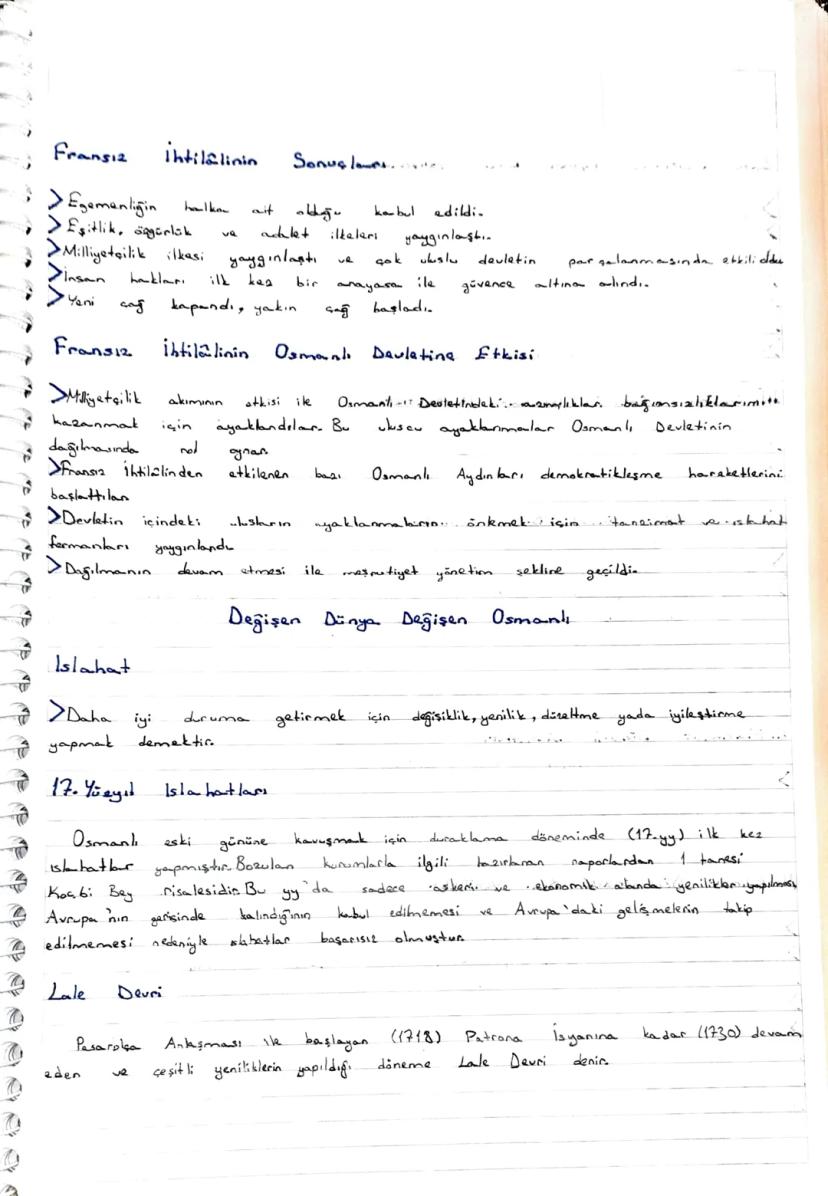 Fransız İhtilâlinin Sonuçları
>Egemenliğin halka ait olduğu kabul edildi.
>Eşitlik, özgürlük ve adalet ilkeleri yaygınlaştı.
>Milliyetçilik ilkesi yaygınlaştı ve çok uluslu devletin parçalanmasında etkili oldu
>İnsan hakları ilk kez bir anayasa ile güvence altına alındı.
>Yeni çağ kapandı, yakın çağ başladı.
Fransız İhtilâlinin Osmanlı Devletine Etkisi
>Milliyetçilik akımının etkisi ile Osmanlı Devletindeki azınlıklar bağımsızlıklarını
kazanmak için ayaklandılar. Bu ulusçu ayaklanmalar Osmanlı Devletinin
dağılmasında rol oynar.
>Fransız İhtilâlinden etkilenen bazı Osmanlı Aydınları demokratikleşme hareketlerini
başlattılar
>Devletin içindeki ulusların ayaklanmalarını önlemek için tanzimat ve ıslahat
fermanları yayınlandı.
>Dağılmanın devam etmesi ile meşrutiyet yönetim şekline geçildi.
Değişen Dünya Değişen Osmanlı
Islahat
>Daha iyi duruma getirmek için değişiklik, yenilik, düzeltme yada iyileştirme
yapmak demektir.
17. Yüzyıl Islahatları
Osmanlı eski gününe kavuşmak için duraklama döneminde (17.yy) ilk kez
ıslahatlar yapmıştır. Bozulan kurumlarla ilgili hazırlanan raporlardan 1 tanesi
Koçbi Bey risalesidir. Bu yy'da sadece askeri ve ekonomik alanda yenilikler yapılması
Avrupa'nın gerisinde kalındığının kabul edilmemesi ve Avrupa'daki gelişmelerin takip
edilmemesi nedeniyle ıslahatlar başarısız olmuştur.
Lale Devri
Pasarolça Antlaşması ile başlayan (1718) Patrona İsyanına kadar (1730) devam
eden ve çeşitli yeniliklerin yapıldığı döneme Lale Devri denir.